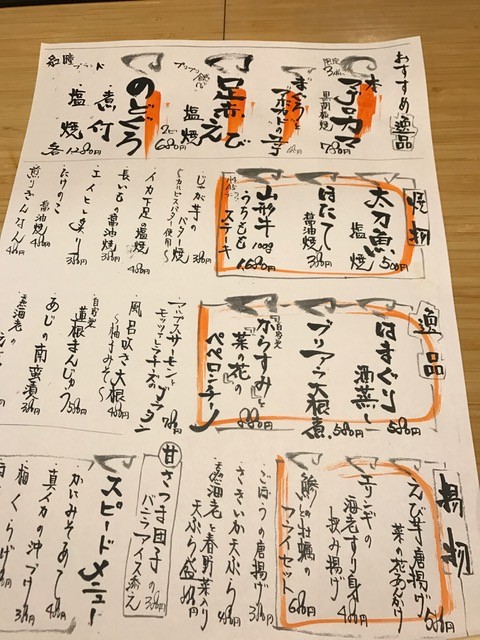 おすすめ逸品
限定3
本マグロカマ
黒胡椒焼 780円
まぐろと
アボカドの
プリプリ食感
足赤えび
塩焼
2匹 680円
北陸ブランド
のどぐろ
煮付
塩焼
各1280円
焼物
太刀魚
塩焼 500円
ほたて
醤油焼 380円
山形牛
うちもも
ステーキ
100g
1,680円
じゃが芋の
バター焼 380円
〜カルピスバター使用〜
イカ下足の塩焼 480円
長いもの醤油焼 380円
エイヒレ炙り 380円
たけのこ
醤油焼 480円
煎りぎんなん 480円
逸品
はまぐり
酒蒸し 580円
ブリアラ大根煮 580円
自家製
からすみと
菜の花の
ペペロンチーノ
880円
アルプスサーモンと
モッツァレラチーズの
グラタン 780円
風呂吹き大根
〜柚子みそ〜 480円
自家製
蓮根まんじゅう 580円
あじの南蛮漬 380円
志海老の
揚物
えび芋唐揚げ
菜の花あんかけ 580円
エリンギの
海老すり身
挟み揚げ 480円
鯵と牡蠣の
フライセット 680円
ごぼうの唐揚げ 380円
ささいか天ぷら 480円
志海老と春野菜入り
天ぷら盛
甘
さつま団子の
バニラアイス添え 380円
スピードメニュー
かにみそあて
真イカの沖づけ
梅くらげ